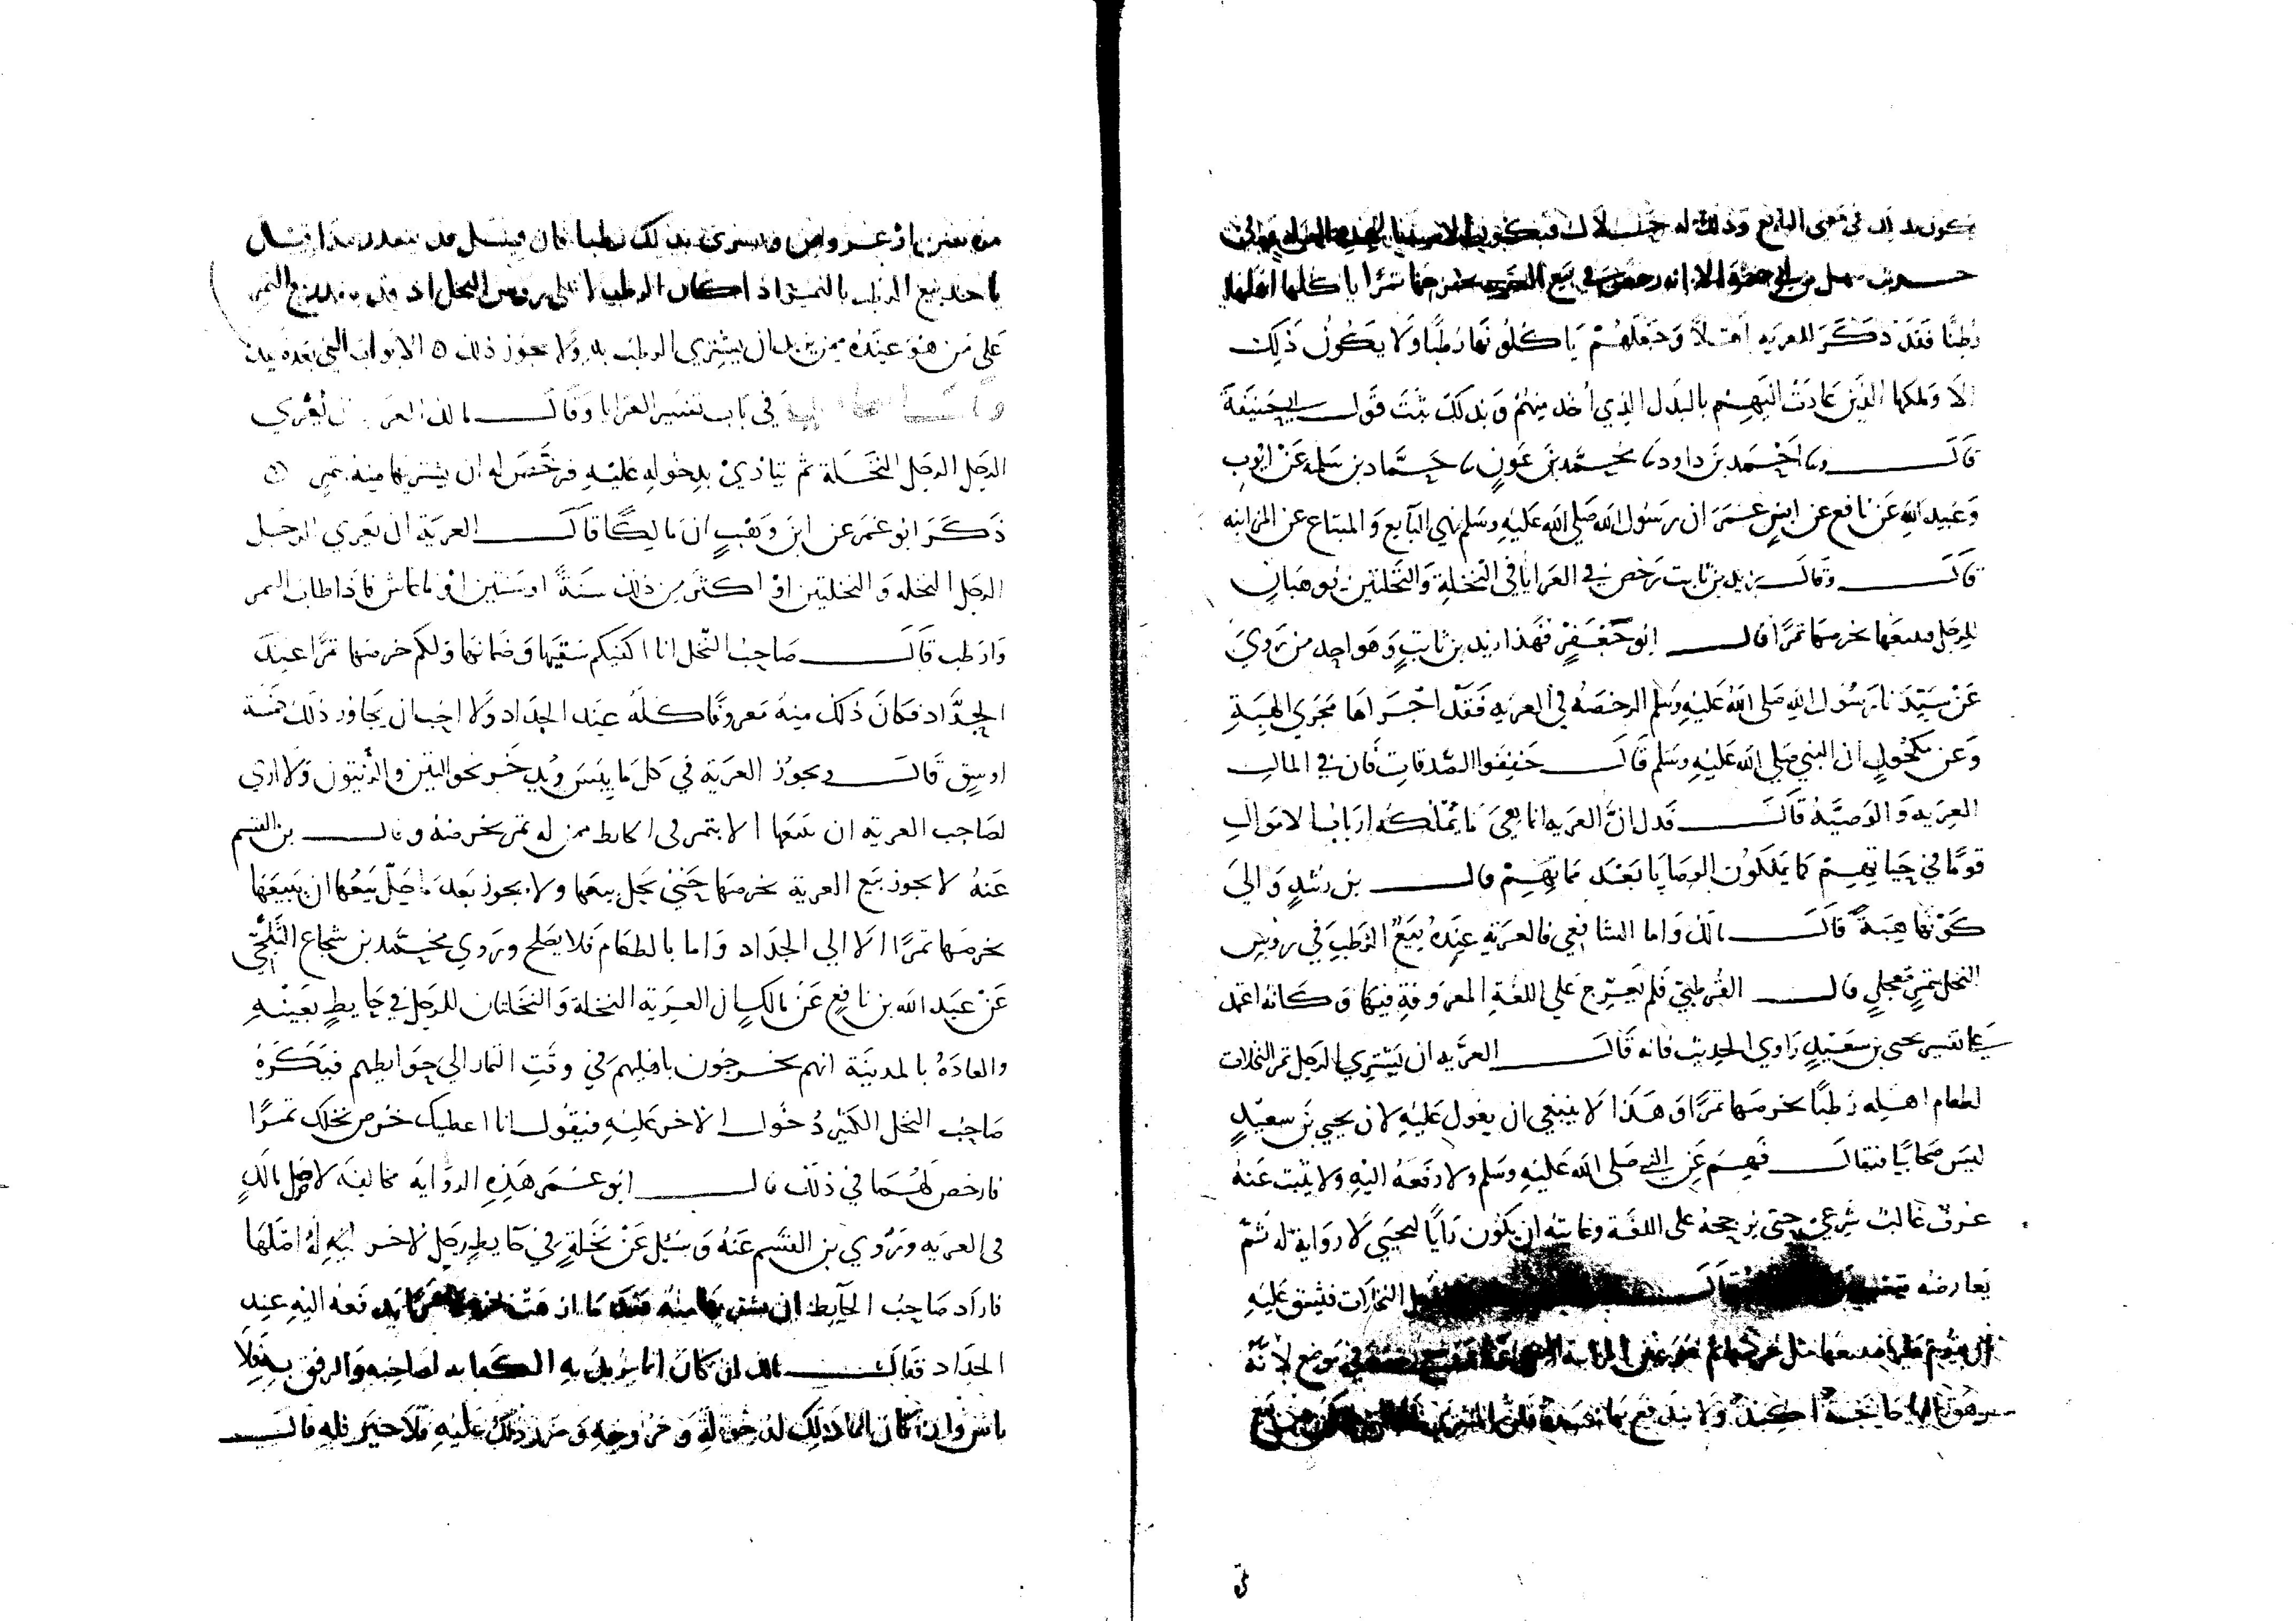 يكون في معنى البايع وذلك له حلال
حديث سهل الا انه رخص في بيع العرية بخرصها تمرا ياكلها اهلها
رطبا فقد ذكر للعريه اهلا وجعلهم ياكلونها رطبا ولا يكون ذلك
الا وملكها الذين عادت اليهم بالبدل الذي اخذ منهم وبذلك يثبت قول ابي حنيفة
قال احمد بن داود محمد بن عون حماد بن سلمه عن ايوب
وعبيد الله عن نافع عن ابن عمر ان رسول الله صلى الله عليه وسلم نهى البايع والمبتاع عن المزابنه
قال وقال زيد بن ثابت رخص في العرايا في النخلة والنخلتين يوهبان
للرجل فيبيعها بخرصها تمرا قال ابو جعفر فهذا زيد بن ثابت وهو احد من روى
عن سيدنا رسول الله صلى الله عليه وسلم الرخصه في العريه فقد اجراها مجرى الهبة
وعن مكحول ان النبي صلى الله عليه وسلم قال خففوا الصدقات فان في المال
العريه والوصية قال فدل ان العريه انما هي ما يملكه ارباب الاموال
قوما في حياتهم كما يملكون الوصايا بعد مماتهم قال بن رشد والى
كونها هبة قال مالك واما الشافعي فالعريه عنده بيع الرطب في روس
النخل بتمر معجل قال القرطبي فلم يعرج على اللغة المعروفة فيها وكانه اعتمد
على تفسير يحيى بن سعيد راوي الحديث فانه قال العريه ان يشتري الرجل تمر النخلات
لطعام اهله رطبا بخرصها تمرا وهذا لا ينبغي ان يعول عليه لان يحيى بن سعيد
ليس صحابيا فيقال فهم عن النبي صلى الله عليه وسلم ولا رفعه اليه ولا يثبت عنه
عرف غالب شرعي حتى يرجحه على اللغة وغايته ان يكون رايا ليحيى لا رواية له ثم
يعارضه النخلات فيشق عليه
ان يقوم عليها فيبيعها بمثل خرصها في موضع لانه
من بيع
من بعين او عروض ويشتري بذلك رطبا فان قيل
ياحد بيع الرطب بالتمر اذا كان الرطب على روس النخل
على من هو عنده ممن يريد ان يشتري الرطب به ولا يجوز ذلك الابواب التي بعده
في باب تفسير العرايا وقال مالك العرية ان يعري
الرجل الرجل النخلة ثم يتاذى بدخوله عليه فرخص له ان يشتريها منه بتمر
ذكر ابو عمر عن ابن وهب ان مالكا قال العرية ان يعري الرجل
الرجل النخله والنخلتين او اكثر من ذلك سنة او سنتين او ما عاش فاذا طاب التمر
وارطب قال صاحب النخل انا اكفيكم سقيها وضمانها ولكم خرصها تمرا عند
الجداد فكان ذلك منه معروفا كله عند الجداد ولا احب ان يجاوز ذلك خمسة
اوسق قال ويجوز العرية في كل ما ييبس ويدخر نحو التين والزيتون ولا ارى
لصاحب العرية ان يبيعها الا بتمر في الحايط ممن له تمر بخرصه وقال بن القسم
عنه لا يجوز بيع العرية بخرصها حتى يحل بيعها ولا يجوز بعد ما حل بيعها ان يبيعها
بخرصها تمرا الا الى الجداد واما بالطعام فلا يصلح وروى محمد بن شجاع الثلجي
عن عبد الله بن نافع عن مالك ان العرية النخلة والنخلتان للرجل في حايط بعينه
والعادة بالمدينة انهم يخرجون باهليهم في وقت الثمار الى حوايطهم فيكره
صاحب النخل الكثير دخول الاخر عليه فيقول انا اعطيك خرص نخلك تمرا
فارخص لهما في ذلك قال ابو عمر هذه الرواية مخالفه لاصل مالك
في العريه وروى بن القسم عنه وسئل عن نخلة في حايط رجل لاخر له اصلها
فاراد صاحب الحايط ان يشتريها منه بعد ما ازهت بخرصها تمرا يدفعه اليه عند
الجداد فقال مالك ان كان انما يريد به الكفاية لصاحبه والرفق به فلا
باس وان كان انما ذلك لدخوله وخروجه وضرر ذلك عليه فلا خير فيه قال